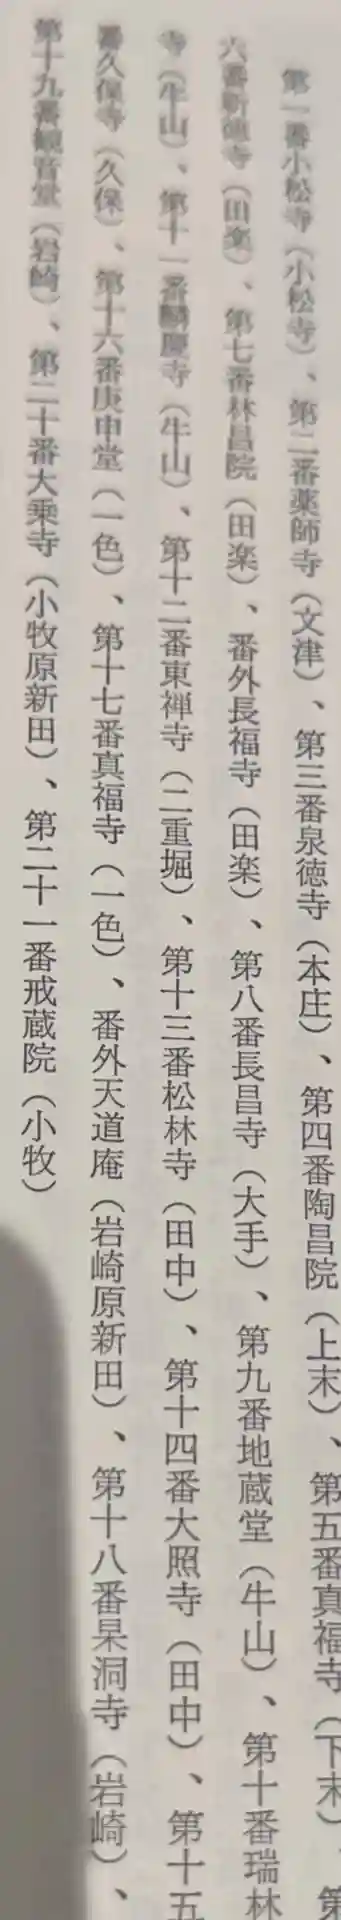 第一番小松寺（小松寺）、第二番薬師寺（文津）、第三番泉徳寺（本庄）、第四番陶昌院（上末）、第五番真福寺（下末）、第
六番新徳寺（田楽）、第七番林昌院（田楽）、番外長福寺（田楽）、第八番長昌寺（大手）、第九番地蔵堂（牛山）、第十番瑞林
寺（牛山）、第十一番麟慶寺（牛山）、第十二番東禅寺（二重堀）、第十三番松林寺（田中）、第十四番大照寺（田中）、第十五
番久保寺（久保）、第十六番庚申堂（一色）、第十七番真福寺（一色）、番外天道庵（岩崎原新田）、第十八番杲洞寺（岩崎）、
第十九番観音堂（岩崎）、第二十番大乗寺（小牧原新田）、第二十一番戒蔵院（小牧）